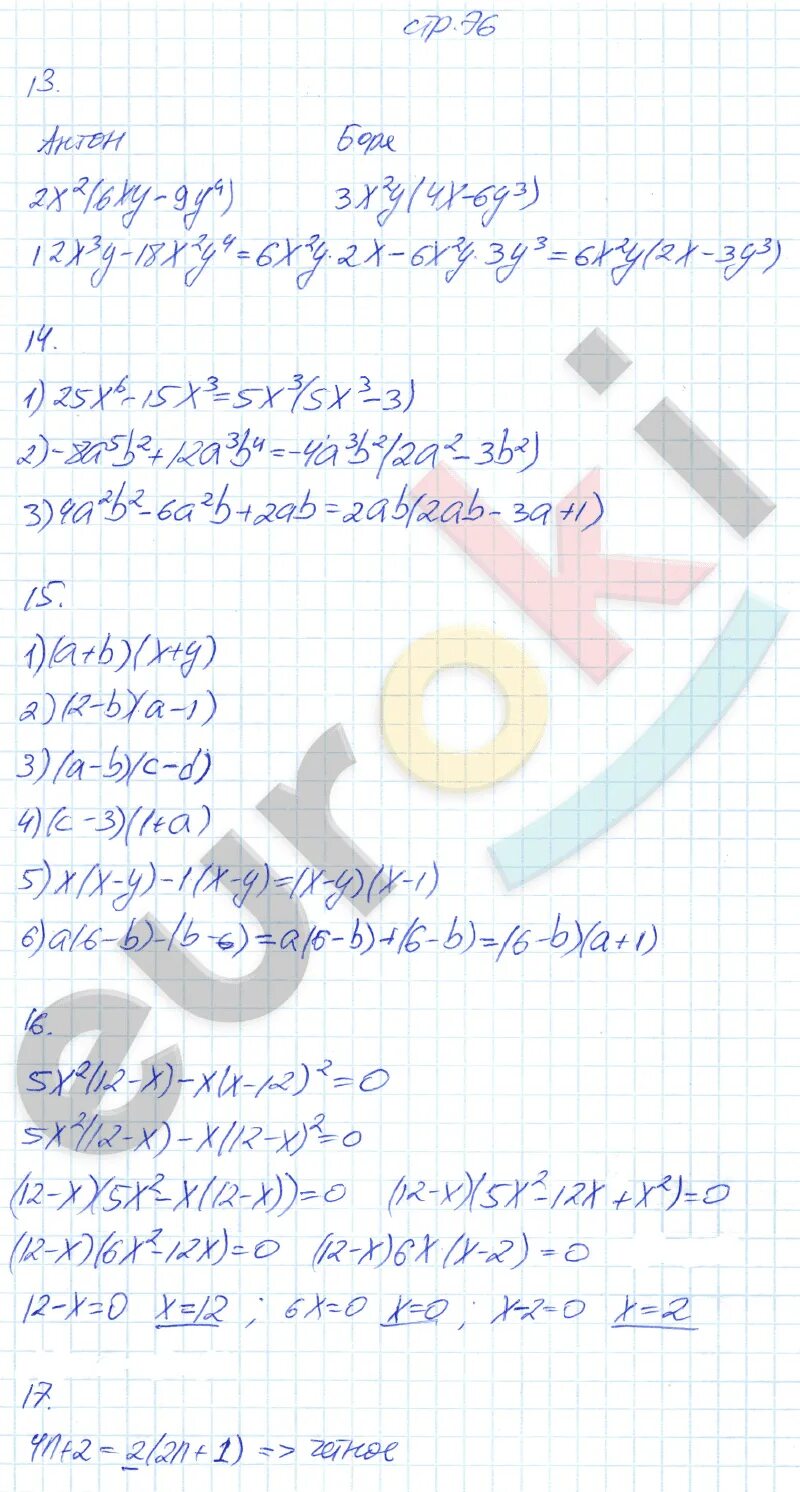 стр. 76
13.
Антон Боря
2x²(6xy - 9y⁴) 3x²y(4x - 6y³)
12x³y - 18x²y⁴ = 6x²y · 2x - 6x²y · 3y³ = 6x²y(2x - 3y³)
14.
1) 25x⁶ - 15x³ = 5x³(5x³ - 3)
2) -8a⁵b² + 12a³b⁴ = -4a³b²(2a² - 3b²)
3) 4a²b² - 6a²b + 2ab = 2ab(2ab - 3a + 1)
15.
1) (a+b)(x+y)
2) (2-b)(a-1)
3) (a-b)(c-d)
4) (c-3)(1+a)
5) x(x-y) - 1(x-y) = (x-y)(x-1)
6) a(6-b) - (b-6) = a(6-b) + (6-b) = (6-b)(a+1)
16.
5x²(12-x) - x(x-12)² = 0
5x²(12-x) - x(12-x)² = 0
(12-x)(5x² - x(12-x)) = 0 (12-x)(5x² - 12x + x²) = 0
(12-x)(6x² - 12x) = 0 (12-x)6x(x-2) = 0
12-x=0 x=12 ; 6x=0 x=0 ; x-2=0 x=2
17.
4n+2 = 2(2n+1) => четное
euroki